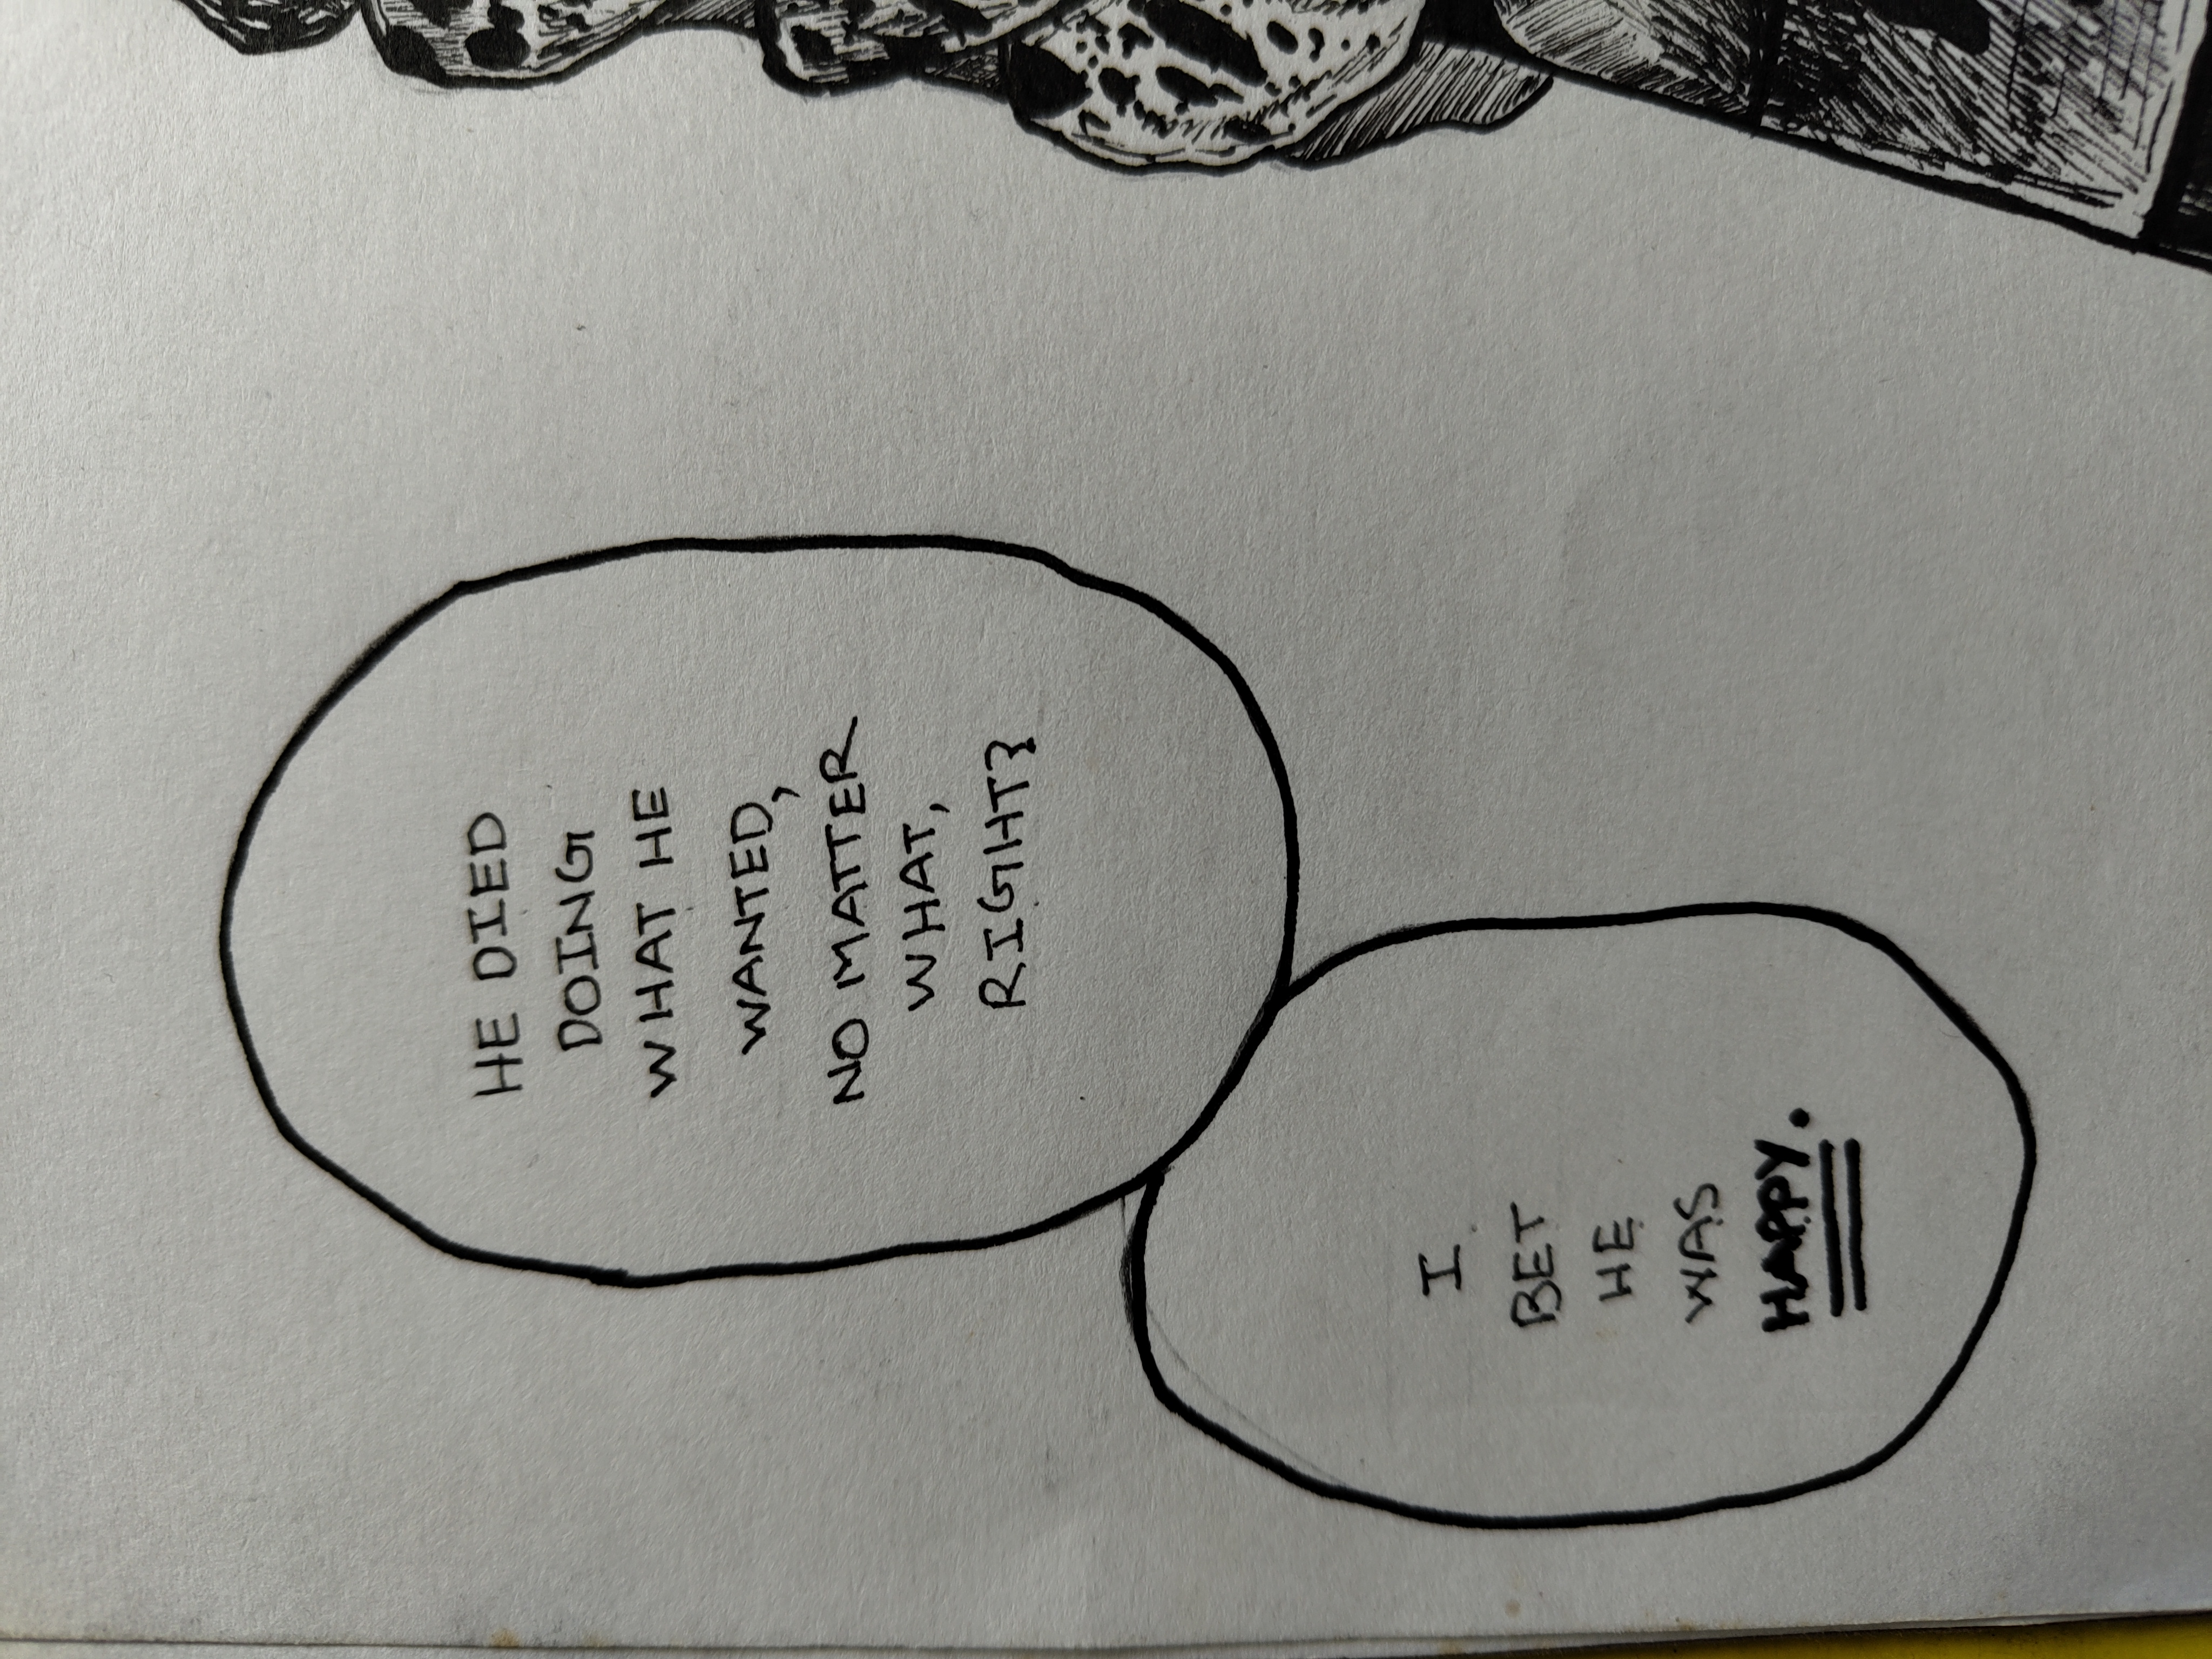 HE DIED
DOING
WHAT HE
WANTED,
NO MATTER
WHAT,
RIGHT?
I
BET
HE
WAS
HAPPY.